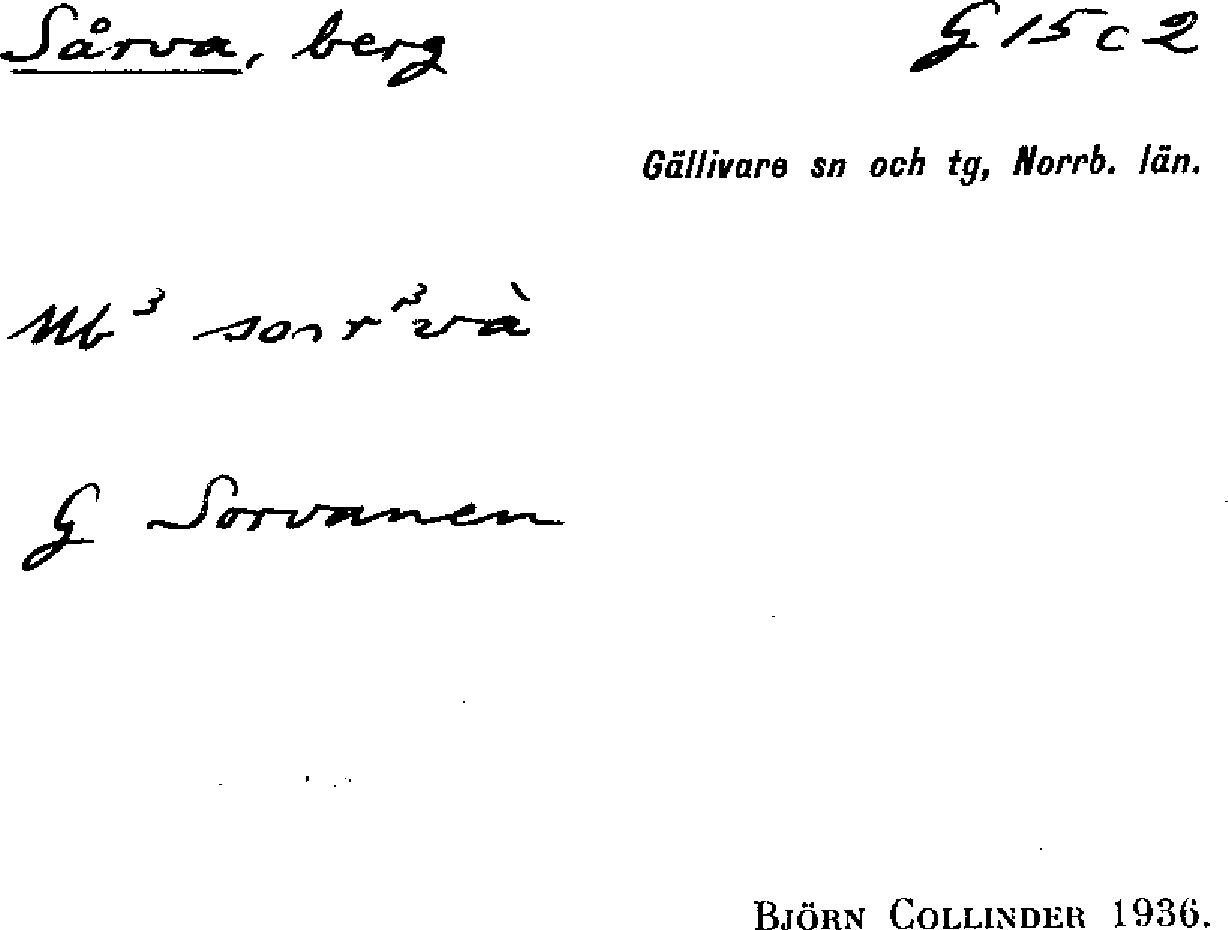 Sårva, berg G 15 c 2
Gällivare sn och tg, Norrb. län.
Nb³
G Sorvanen
BJÖRN COLLINDER 1936.